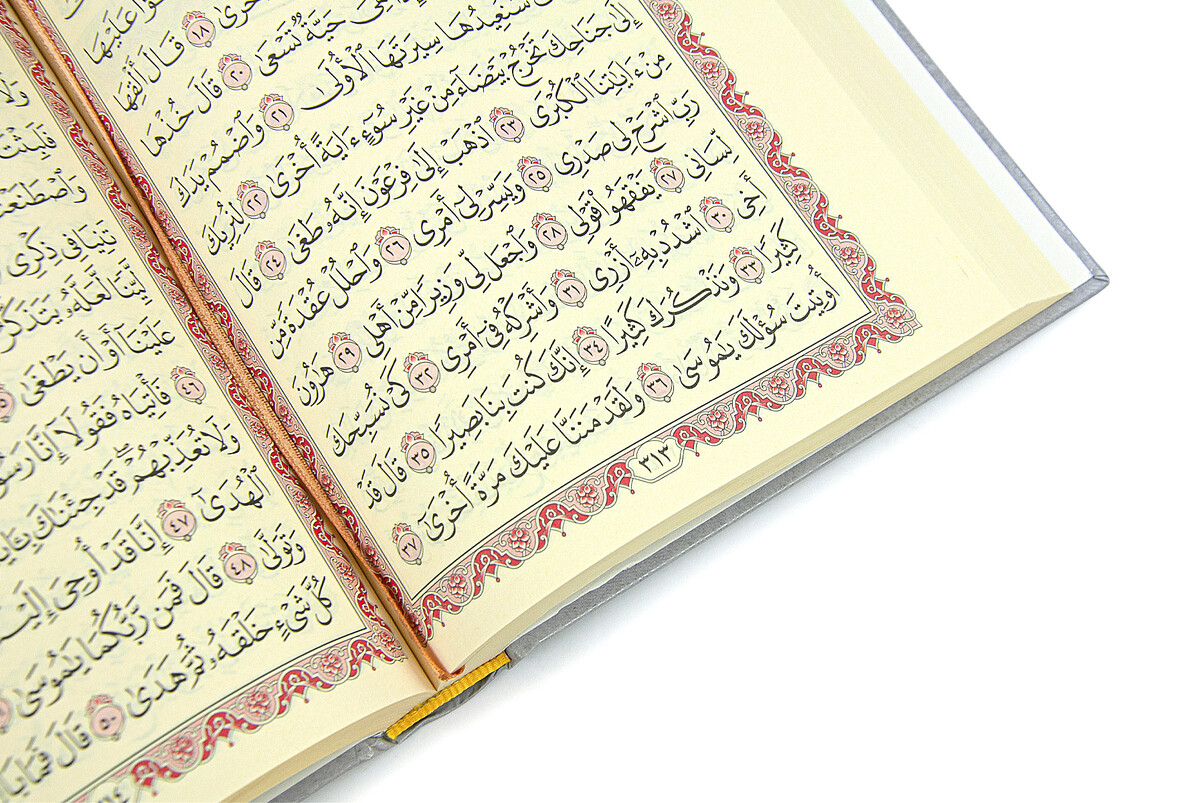 عَلَيْهَا
أُخْرَىٰ ١٨ قَالَ أَلْقِهَا
حَيَّةٌ تَسْعَىٰ ٢٠ قَالَ خُذْهَا
سَنُعِيدُهَا سِيرَتَهَا ٱلْأُولَىٰ ٢١ وَٱضْمُمْ يَدَكَ
إِلَىٰ جَنَاحِكَ تَخْرُجْ بَيْضَآءَ مِنْ غَيْرِ سُوٓءٍ ءَايَةً أُخْرَىٰ ٢٢ لِنُرِيَكَ
مِنْ ءَايَٰتِنَا ٱلْكُبْرَى ٢٣ ٱذْهَبْ إِلَىٰ فِرْعَوْنَ إِنَّهُۥ طَغَىٰ ٢٤ قَالَ
رَبِّ ٱشْرَحْ لِى صَدْرِى ٢٥ وَيَسِّرْ لِىٓ أَمْرِى ٢٦ وَٱحْلُلْ عُقْدَةً مِّن
لِّسَانِى ٢٧ يَفْقَهُوا۟ قَوْلِى ٢٨ وَٱجْعَل لِّى وَزِيرًا مِّنْ أَهْلِى ٢٩ هَٰرُونَ
أَخِى ٣٠ ٱشْدُدْ بِهِۦٓ أَزْرِى ٣١ وَأَشْرِكْهُ فِىٓ أَمْرِى ٣٢ كَىْ نُسَبِّحَكَ
كَثِيرًا ٣٣ وَنَذْكُرَكَ كَثِيرًا ٣٤ إِنَّكَ كُنتَ بِنَا بَصِيرًا ٣٥ قَالَ قَدْ
أُوتِيتَ سُؤْلَكَ يَٰمُوسَىٰ ٣٦ وَلَقَدْ مَنَنَّا عَلَيْكَ مَرَّةً أُخْرَىٰ ٣٧
٣١٣
فَلَبِثْتَ
تَنِيَا فِى ذِكْرِى
لَّيِّنًا لَّعَلَّهُۥ يَتَذَكَّرُ
عَلَيْنَآ أَوْ أَن يَطْغَىٰ
٤٦ فَأْتِيَاهُ فَقُولَآ إِنَّا رَسُولَا
وَلَا تُعَذِّبْهُمْ قَدْ جِئْنَٰكَ
ٱلْهُدَىٰٓ ٤٧ إِنَّا قَدْ أُوحِىَ إِلَيْنَآ
وَتَوَلَّىٰ ٤٨ قَالَ فَمَن رَّبُّكُمَا يَٰمُوسَىٰ
كُلَّ شَىْءٍ خَلْقَهُۥ ثُمَّ هَدَىٰ ٥٠ قَالَ فَمَا